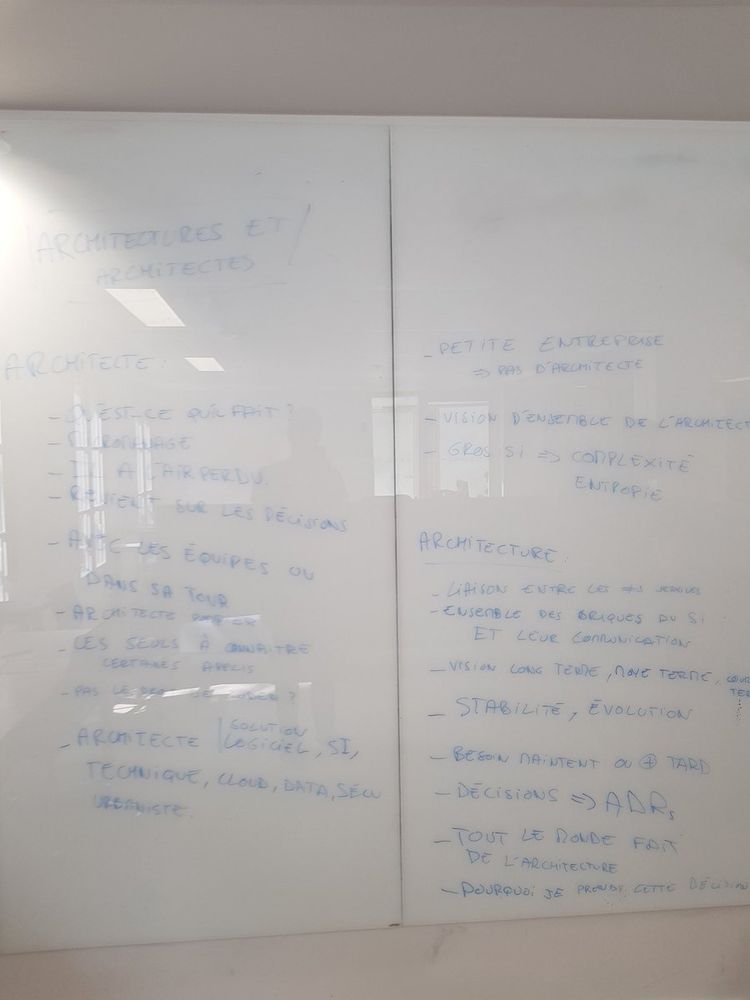 ARCHITECTURES ET
ARCHITECTES
ARCHITECTE :
- QU'EST-CE QU'IL FAIT ?
- MICROMANAGE
- IL A L'AIR PERDU.
- REVIENT SUR LES DÉCISIONS
- AVEC LES ÉQUIPES OU
DANS SA TOUR
- ARCHITECTE
- LES SEULS À CONNAITRE
CERTAINES APPLIS
- PAS LE DE CODER ?
- ARCHITECTE | SOLUTION
LOGICIEL, SI,
TECHNIQUE, CLOUD, DATA, SÉCU
URBANISTE.
- PETITE ENTREPRISE
=> PAS D'ARCHITECTE
- VISION D'ENSEMBLE DE L'ARCHITECT
- GROS SI => COMPLEXITÉ
ENTROPIE
ARCHITECTURE :
- LIAISON ENTRE LES
- ENSEMBLE DES BRIQUES DU SI
ET LEUR COMMUNICATION
- VISION LONG TERME, MOYE TERME, COURT
TER
- STABILITÉ, ÉVOLUTION
- BESOIN MAINTENT OU ⊕ TARD
- DÉCISIONS => ADRs
- TOUT LE MONDE FAIT
DE L'ARCHITECTURE
- POURQUOI JE PRENDS CETTE DÉCISION